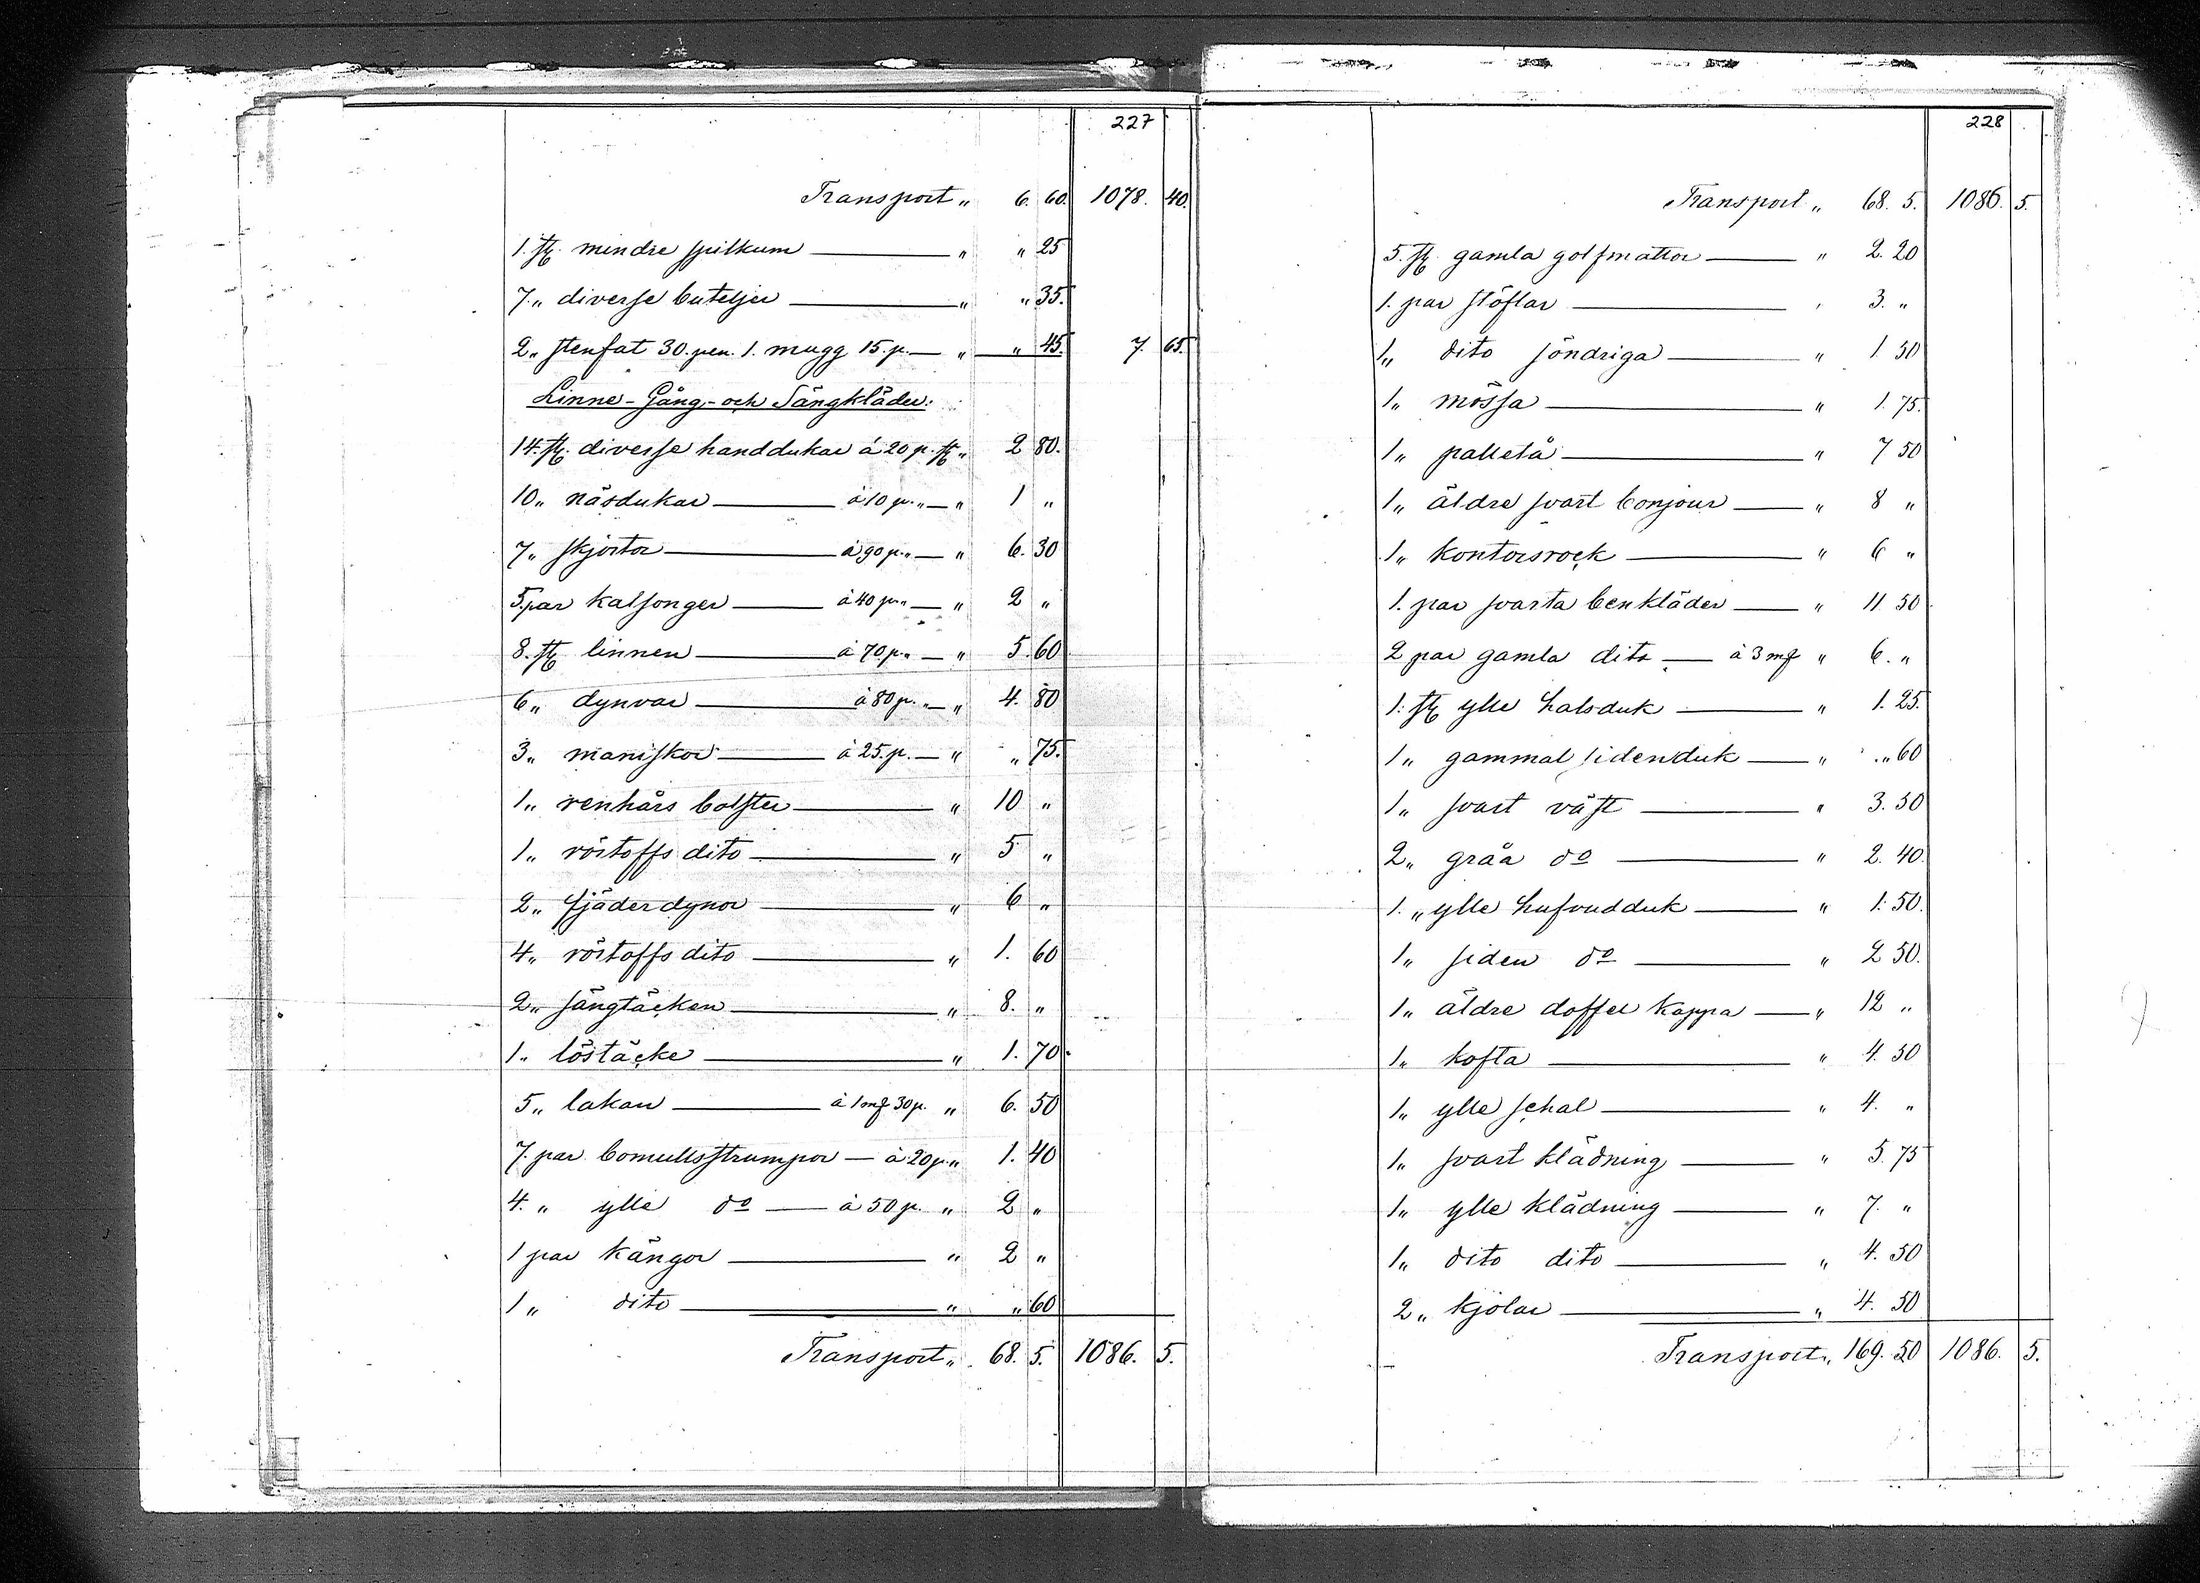 227
Transport „ 6. 60. 1078. 40.
1. st. mindre spilkum „ „ 25
7. „ diverse buteljer „ „ 35.
2 „ stenfat 30. pen. 1. mugg 15. p. „ „ 45. 7. 65.
Linne- Gång- och Sängkläder:
14. st. diverse handdukar á 20 p. st „ 2 80.
10 „ näsdukar á 10 p. „ „ 1 „
7 „ skjortor á 90 p. „ „ 6. 30
5. par kalsonger á 40 p. „ „ 2 „
8. st. linnen á 70 p. „ „ 5. 60
6 „ dynvar á 80 p. „ „ 4. 80
3 „ maniskor á 25. p. „ „ 75.
1 „ renhårs bolster „ 10 „
1 „ röstoffs dito „ 5 „
2 „ fjäderdynor „ 6 „
4 „ röstoffs dito „ 1. 60
2 „ sängtäcken „ 8. „
1 „ löstäcke „ 1. 70.
5 „ lakan á 1 mf 30 p. „ 6. 50
7. par bomullsstrumpor á 20 p. „ 1. 40
4. „ ylle do á 50 p. „ 2 „
1 par kängor „ 2 „
1 „ dito „ „ 60
Transport „ 68. 5. 1086. 5.
228
Transport „ 68. 5. 1086. 5.
5. st. gamla golfmattor „ 2. 20
1. par stöflar „ 3. „
1 „ dito söndriga „ 1 50
1 „ mössa „ 1. 75.
1 „ palletå „ 7 50
1 „ äldre svart bonjour „ 8 „
1 „ kontorsrock „ 6 „
1. par svarta benkläder „ 11. 50
2 par gamla dito á 3 mf „ 6. „
1. st ylle halsduk „ 1. 25.
1 „ gammal sidenduk „ „ 60
1 „ svart väst „ 3. 50
2 „ gråa do „ 2. 40.
1. „ ylle hufvudduk „ 1. 50.
1 „ siden do „ 2 50.
1 „ äldre doffel kappa „ 12 „
1 „ kofta „ 4. 50
1 „ ylle schal „ 4. „
1 „ svart klädning „ 5. 75
1 „ ylle klädning „ 7. „
1 „ dito dito „ 4. 50
2 „ kjolar „ 4. 50
Transport „ 169. 50 1086. 5.